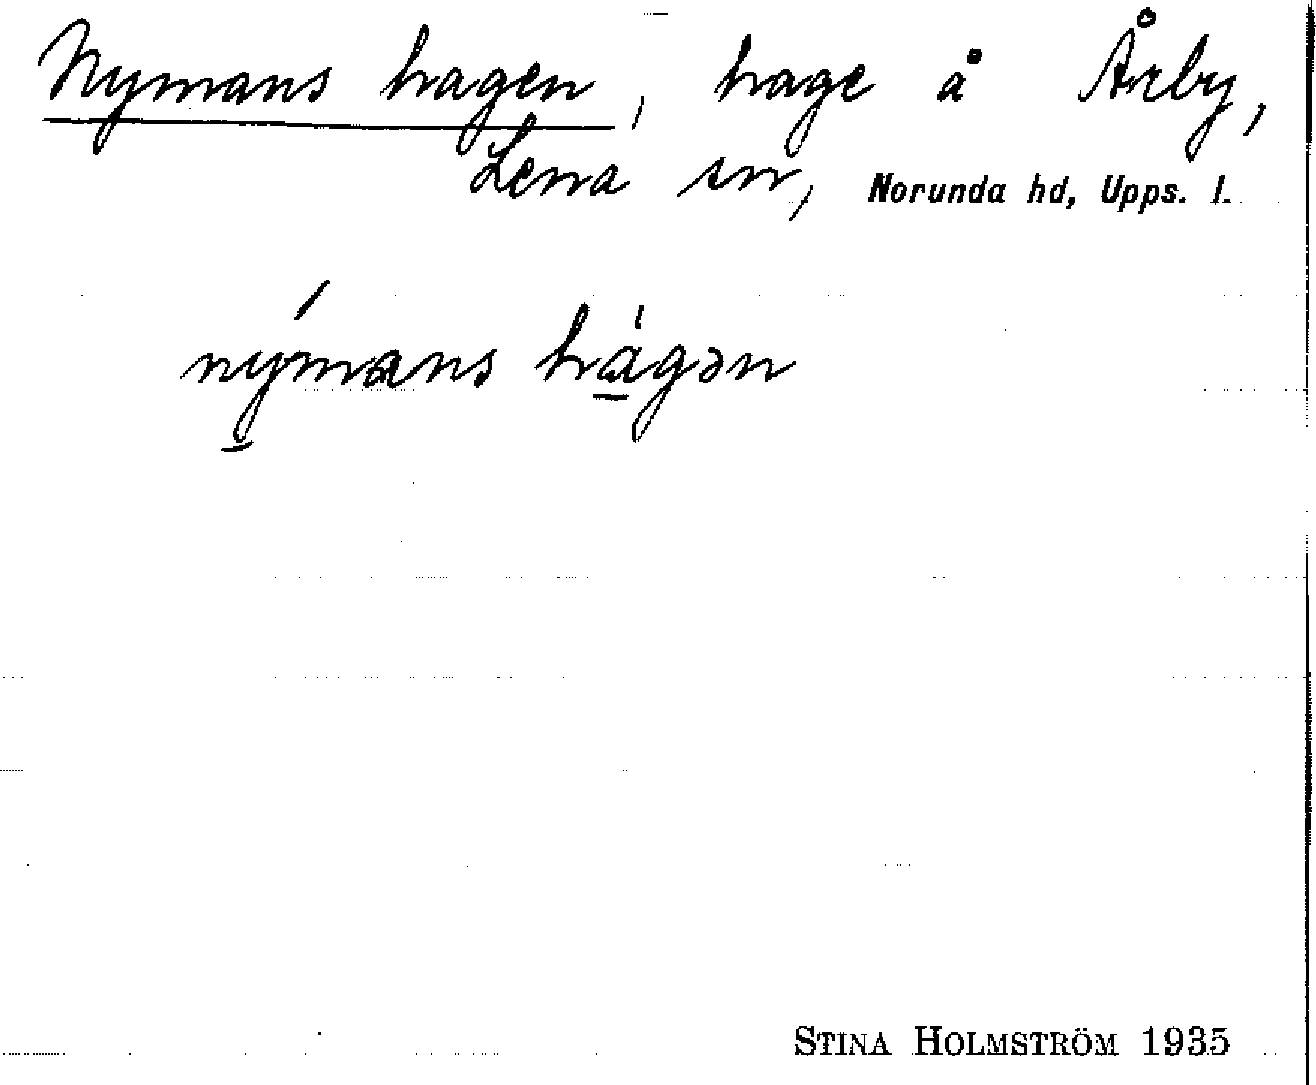 Nymans hagen, hage å Årby,
Lena sn, Norunda hd, Upps. l.
ný̱mans hà̱gən
STINA HOLMSTRÖM 1935